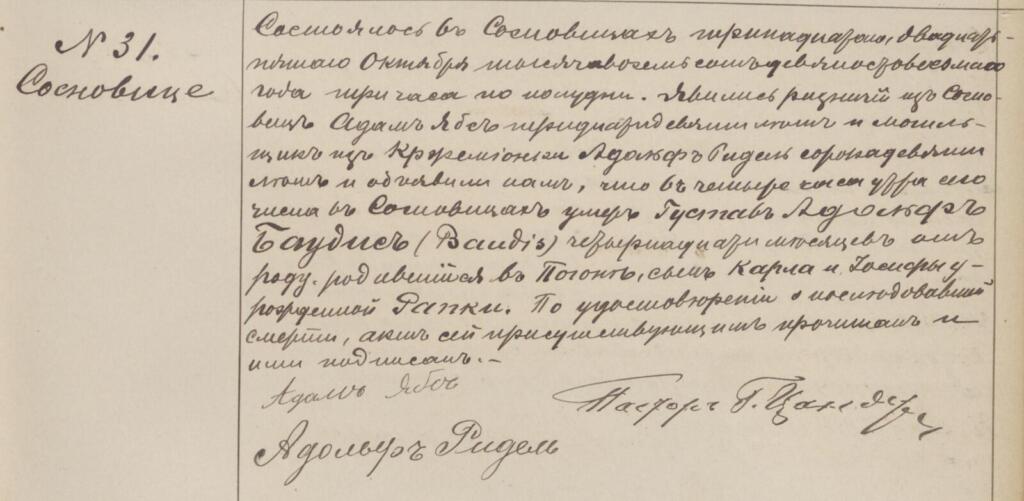 N 31.
Сосновице
Состоялось въ Сосновицахъ тринадцатаго, двадцать
пятаго Октября тысяча восемь сотъ девяносто восьмаго
года три часа по полудни. Явились ризничій изъ Сосно-
вецъ Адамъ Ябсъ тридцати девяти лѣтъ и могиль-
щикъ изъ Кржеміонки Адольфъ Ридель сорока девяти
лѣтъ и объявили намъ, что въ четыре часа утра сего
числа въ Сосновицахъ умеръ Густавъ Адольфъ
Баудисъ (Baudis) четырнадцати мѣсяцевъ отъ
роду. родившійся въ Погонѣ, сынъ Карла и Іосифы у-
рожденной Рапки. По удостовѣреніи о послѣдовавшей
смерти, актъ сей присутствующимъ прочитанъ и
ими подписанъ.-
Адамъ Ябсъ
Пасторъ Г. Цандеръ
Адольфъ Ридель